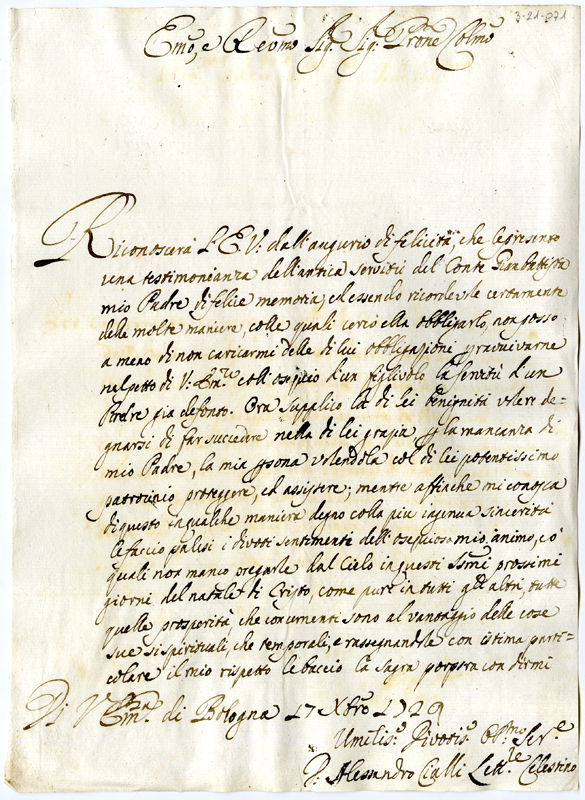 3-21-071
Emo, e Revmo Sig. Sig. Prone Colmo
Riconoscerà l'E.V. dall'augurio di felicità, che le presento
una testimonianza dell'antica servitù del Conte Gianbattista
mio Padre di felice memoria, ed essendo ricordevole certamente
delle molte maniere, colle quali cercò ella obbligarlo, non posso
a meno di non caricarmi delle di lui obbligazioni p ravvivarne
nel petto di V. Emza coll'ossequio d'un figlivolo la servitù d'un
Predre già defonto. Ora supplico la di lei benignità volere de=
gnarsi di far succedere nella di lei grazia p la mancanza di
mio Padre, la mia psona volendola col di lei potentissimo
patrocinio proteggere, ed assistere; mentre affinche mi conosca
di questo in qualche maniera degno colla più ingenua sincerità
le faccio palesi i divoti sentimenti dell'ossequioso mio animo, co'
quali non manco pregarle dal Cielo in questi ssmi prossimi
giorni del natale di Cristo, come pure in tutti gli altri, tutte
quelle prosperità che concernenti sono al vantaggio delle cose
sue si spirituali, che temporali, e rassegnandole con istima parti=
colare il mio rispetto le baccio la sagra porpora con dirmi
Di V. Emza. di Bologna 17 Xbre 1729
Umiliss.o Divotis.o Obmo Ser.e
D. Alessandro Cialli Lett.re Celestino